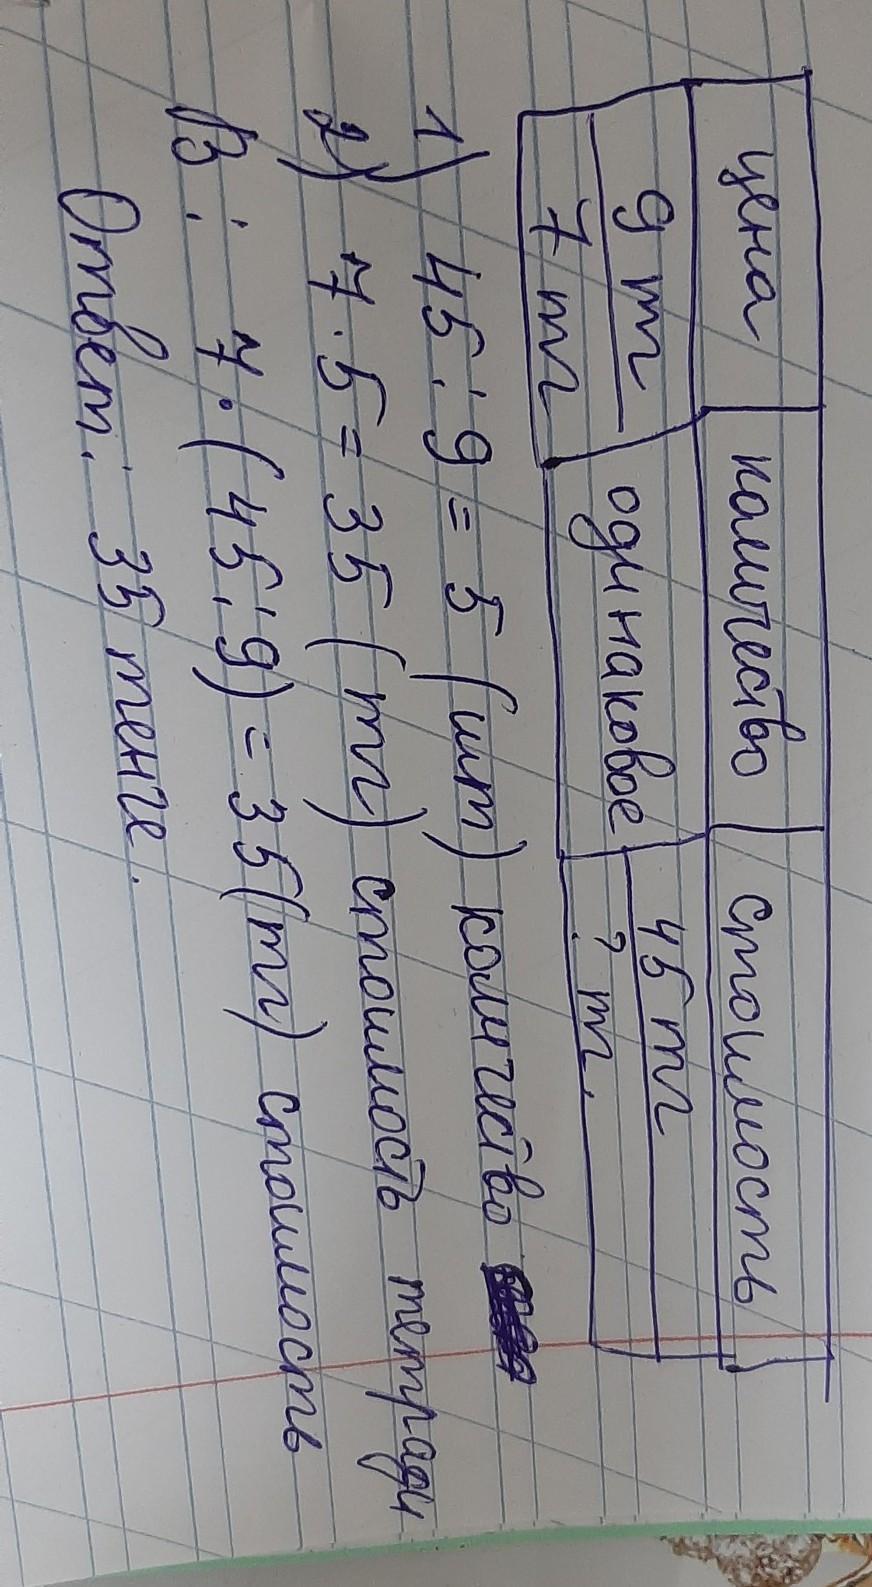 цена количество стоимость
9 тг одинаковое 45 тг
7 тг ? тг.
1) 45 : 9 = 5 (шт) количество
2) 7 · 5 = 35 (тг) стоимость тетради
В: 7 · (45 : 9) = 35 (тг) стоимость
Ответ: 35 тенге.